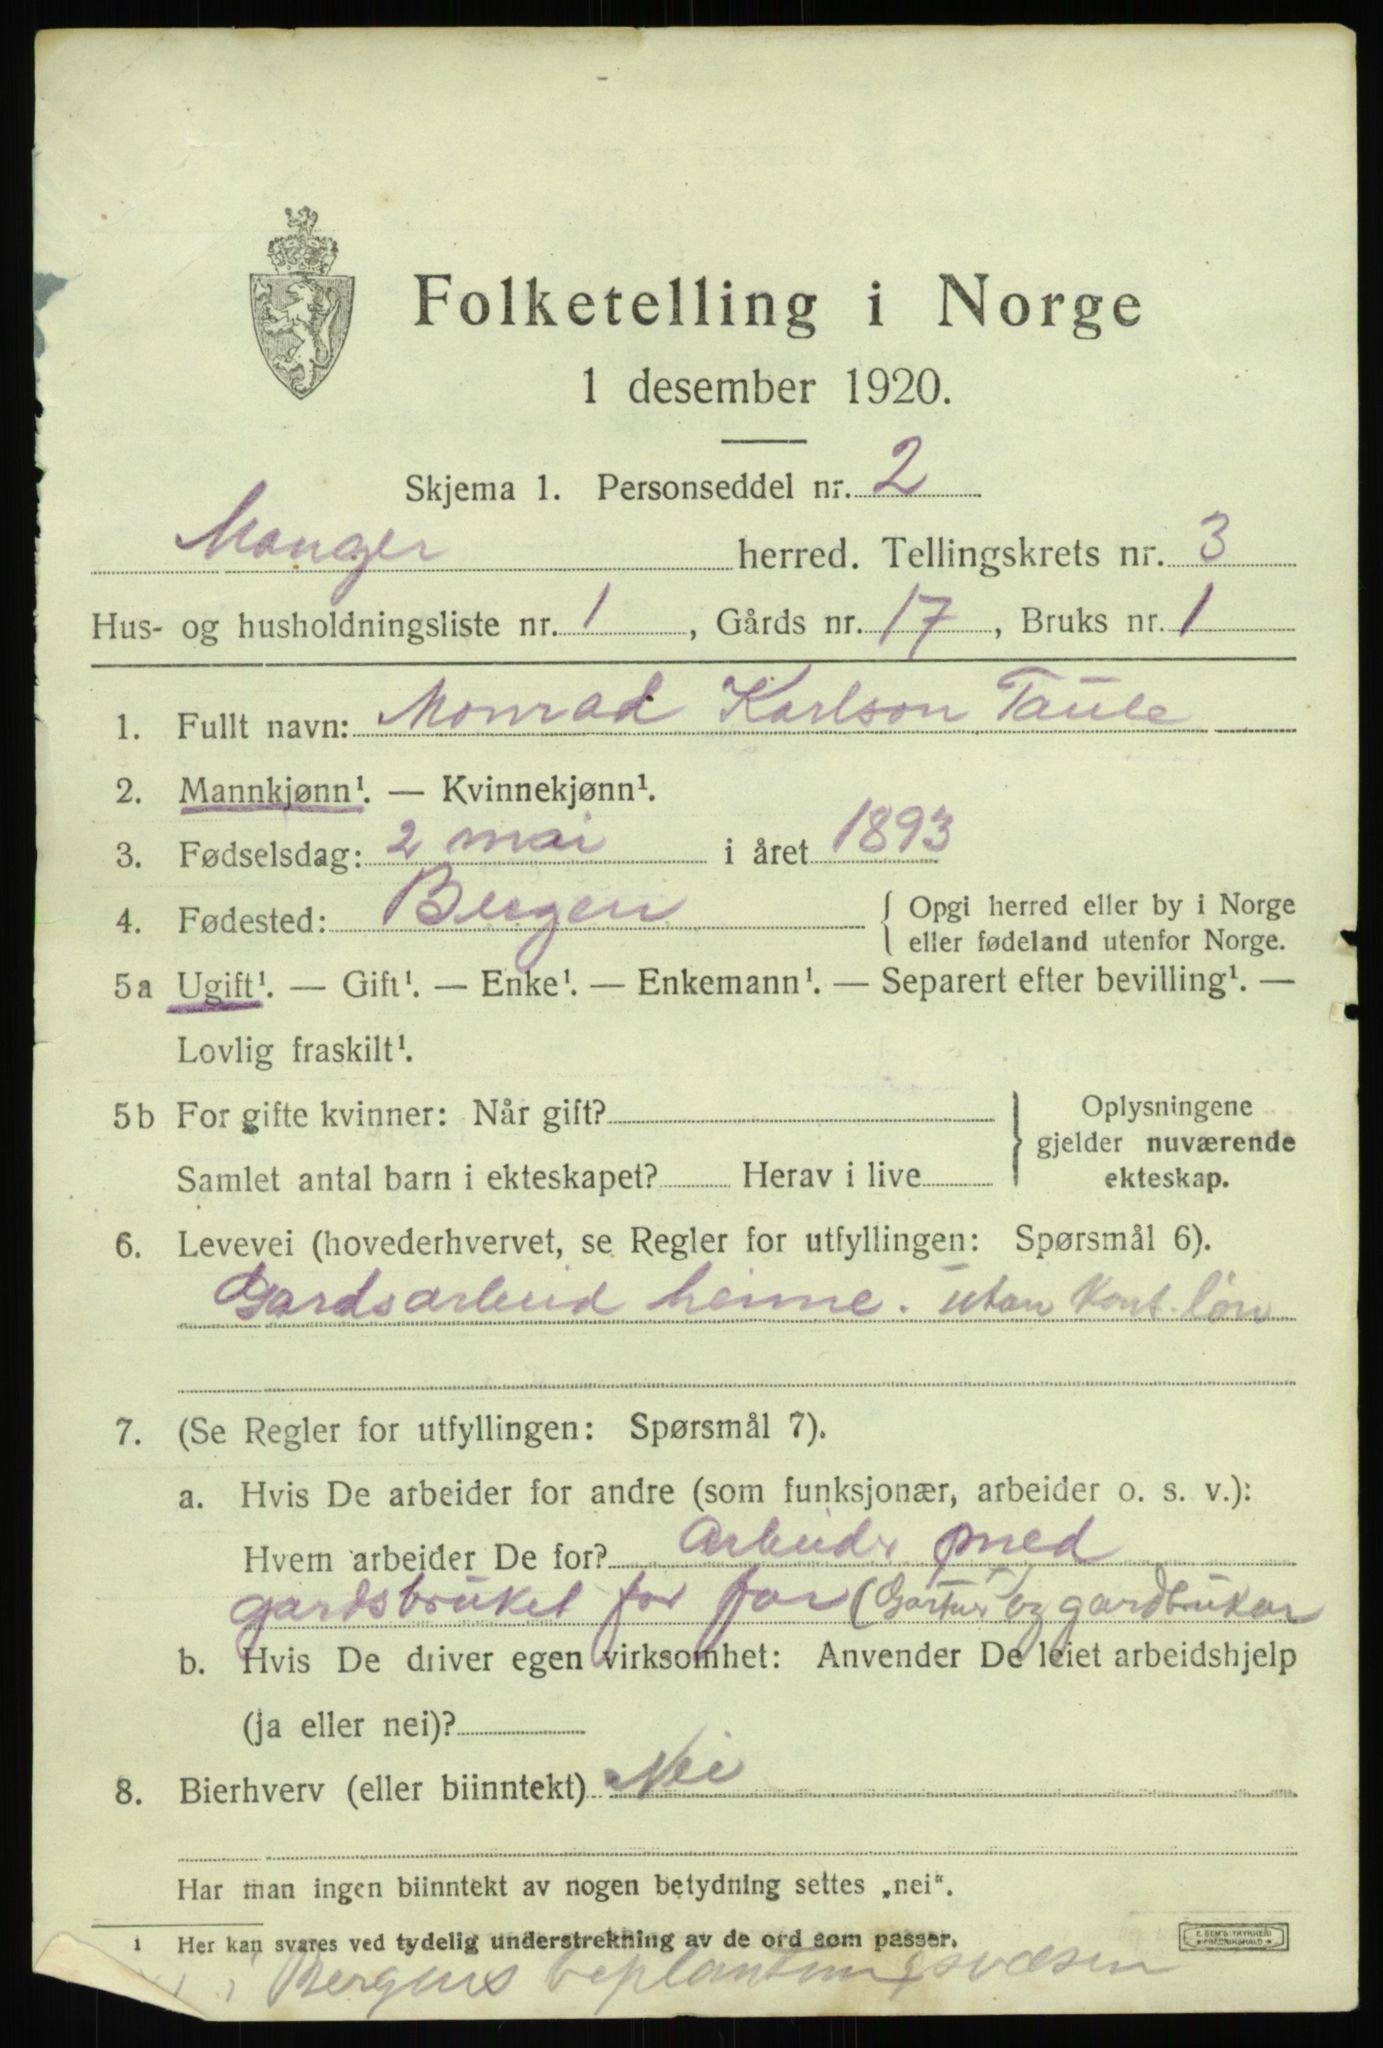 Folketelling i Norge
1 desember 1920.
Skjema 1. Personseddel nr. 2
Manger herred. Tellingskrets nr. 3
Hus- og husholdningsliste nr. 1, Gårds nr. 17, Bruks nr. 1
1. Fullt navn: Monrad Karlson Taule
2. Mannkjønn¹. — Kvinnekjønn¹.
3. Fødselsdag: 2 mai i året 1893
4. Fødested: Bergen { Opgi herred eller by i Norge
eller fødeland utenfor Norge.
5a Ugift¹. — Gift¹. — Enke¹. — Enkemann¹. — Separert efter bevilling¹. —
Lovlig fraskilt¹.
5b For gifte kvinner: Når gift? } Oplysningene
gjelder nuværende
Samlet antal barn i ekteskapet? Herav i live ekteskap.
6. Levevei (hovederhvervet, se Regler for utfyllingen: Spørsmål 6).
Gardsarbeid heime. utan kont. løn
7. (Se Regler for utfyllingen: Spørsmål 7).
a. Hvis De arbeider for andre (som funksjonær, arbeider o. s. v.):
Hvem arbeider De for? Arbeidr med
gardsbruket for far (Gartner x) og gardbrukar
b. Hvis De driver egen virksomhet: Anvender De leiet arbeidshjelp
(ja eller nei)?
8. Bierhverv (eller biinntekt) Nei
Har man ingen biinntekt av nogen betydning settes „nei“.
1 Her kan svares ved tydelig understrekning av de ord som passer.
E. SEM'S TRYKKERI
FREDRIKSHALD
i Bergens beplantningsvæsen